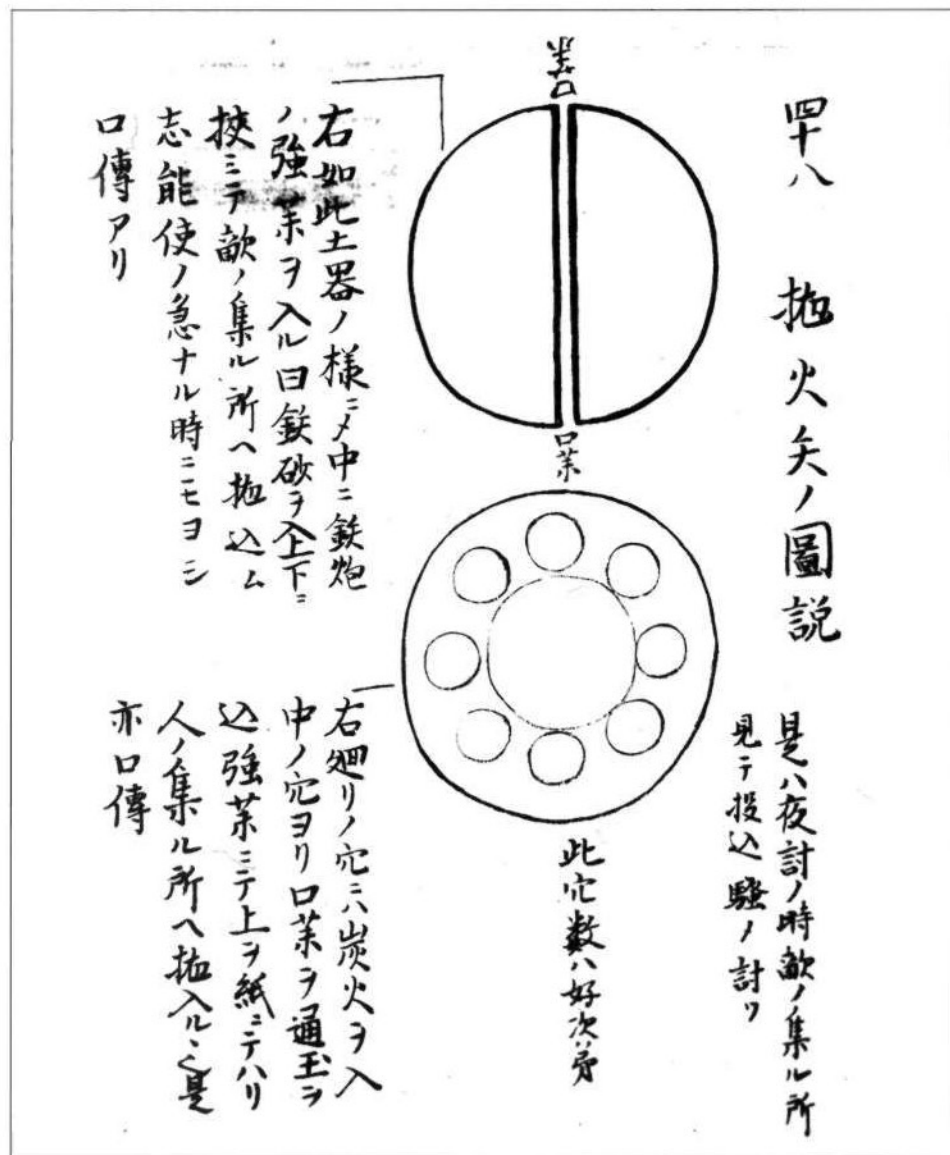 四十八 抛火矢ノ圖説
是ハ夜討ノ時敵ノ集ル所
見テ投込騒ノ討リ
口薬
口薬
右如此土器ノ様ニメ中ニ鉄炮
ノ強薬ヲ入ル曰鉄砂ヲ入上下ニ
挾ミテ敵ノ集ル所ヘ抛込ム
志能使ノ急ナル時ニモヨシ
口傳アリ
此穴数ハ好次第
右廻リノ穴ニハ炭火ヲ入
中ノ穴ヨリ口薬ヲ通玉ヲ
込強薬ニテ上ヲ紙ニテハリ
人ノ集ル所ヘ抛入ル是
亦口傳